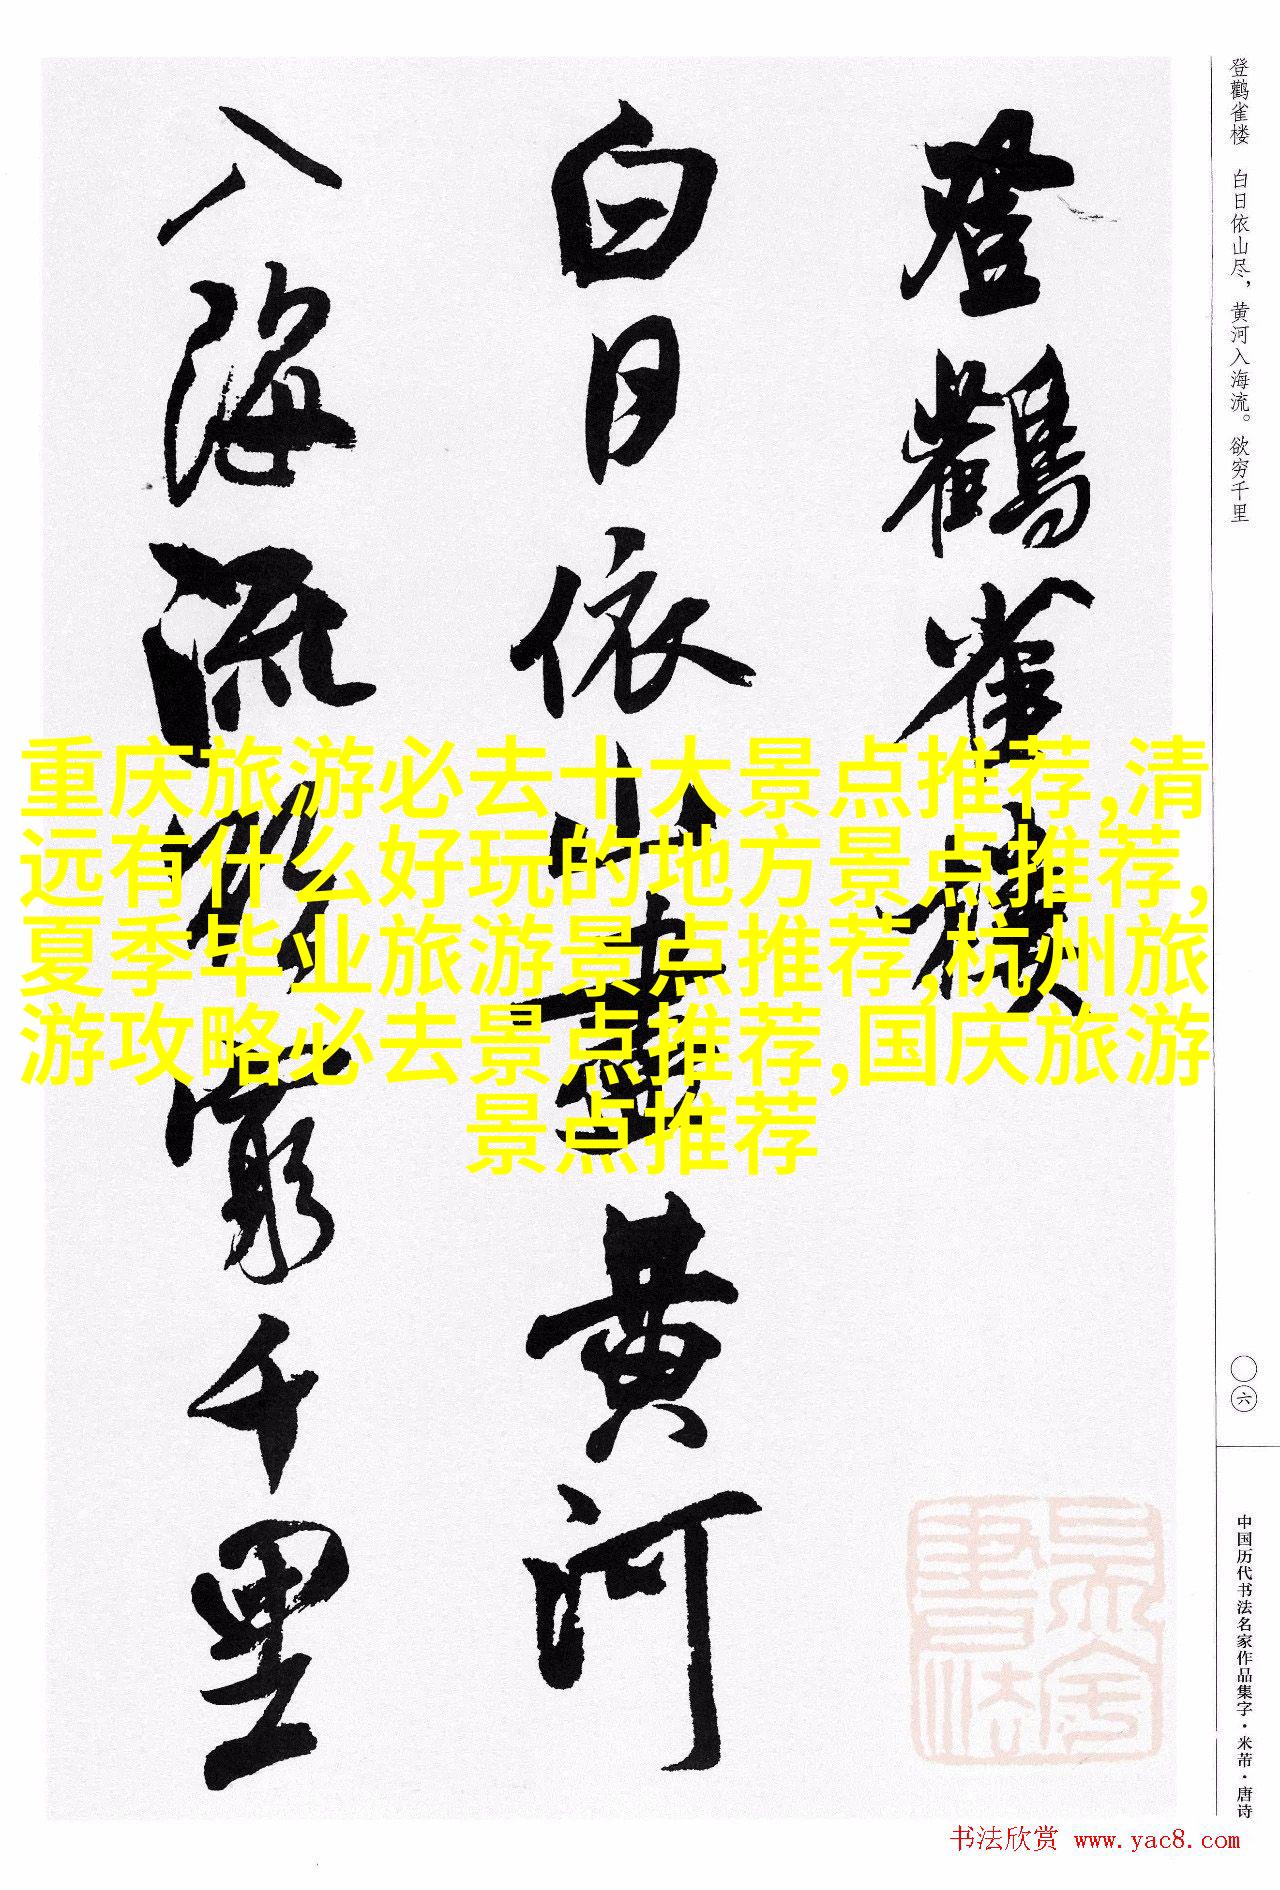 登鹳雀楼
白日依山尽黄河
入海流欲穷千里
登鹳雀楼 白日依山尽，黄河入海流。欲穷千里
〇六
中国历代书法名家作品集字·米芾·唐诗
重庆旅游必去十大景点推荐,清
远有什么好玩的地方景点推荐,
夏季毕业旅游景点推荐,杭州旅
游攻略必去景点推荐,国庆旅游
景点推荐
书法欣赏 www.yac8.com